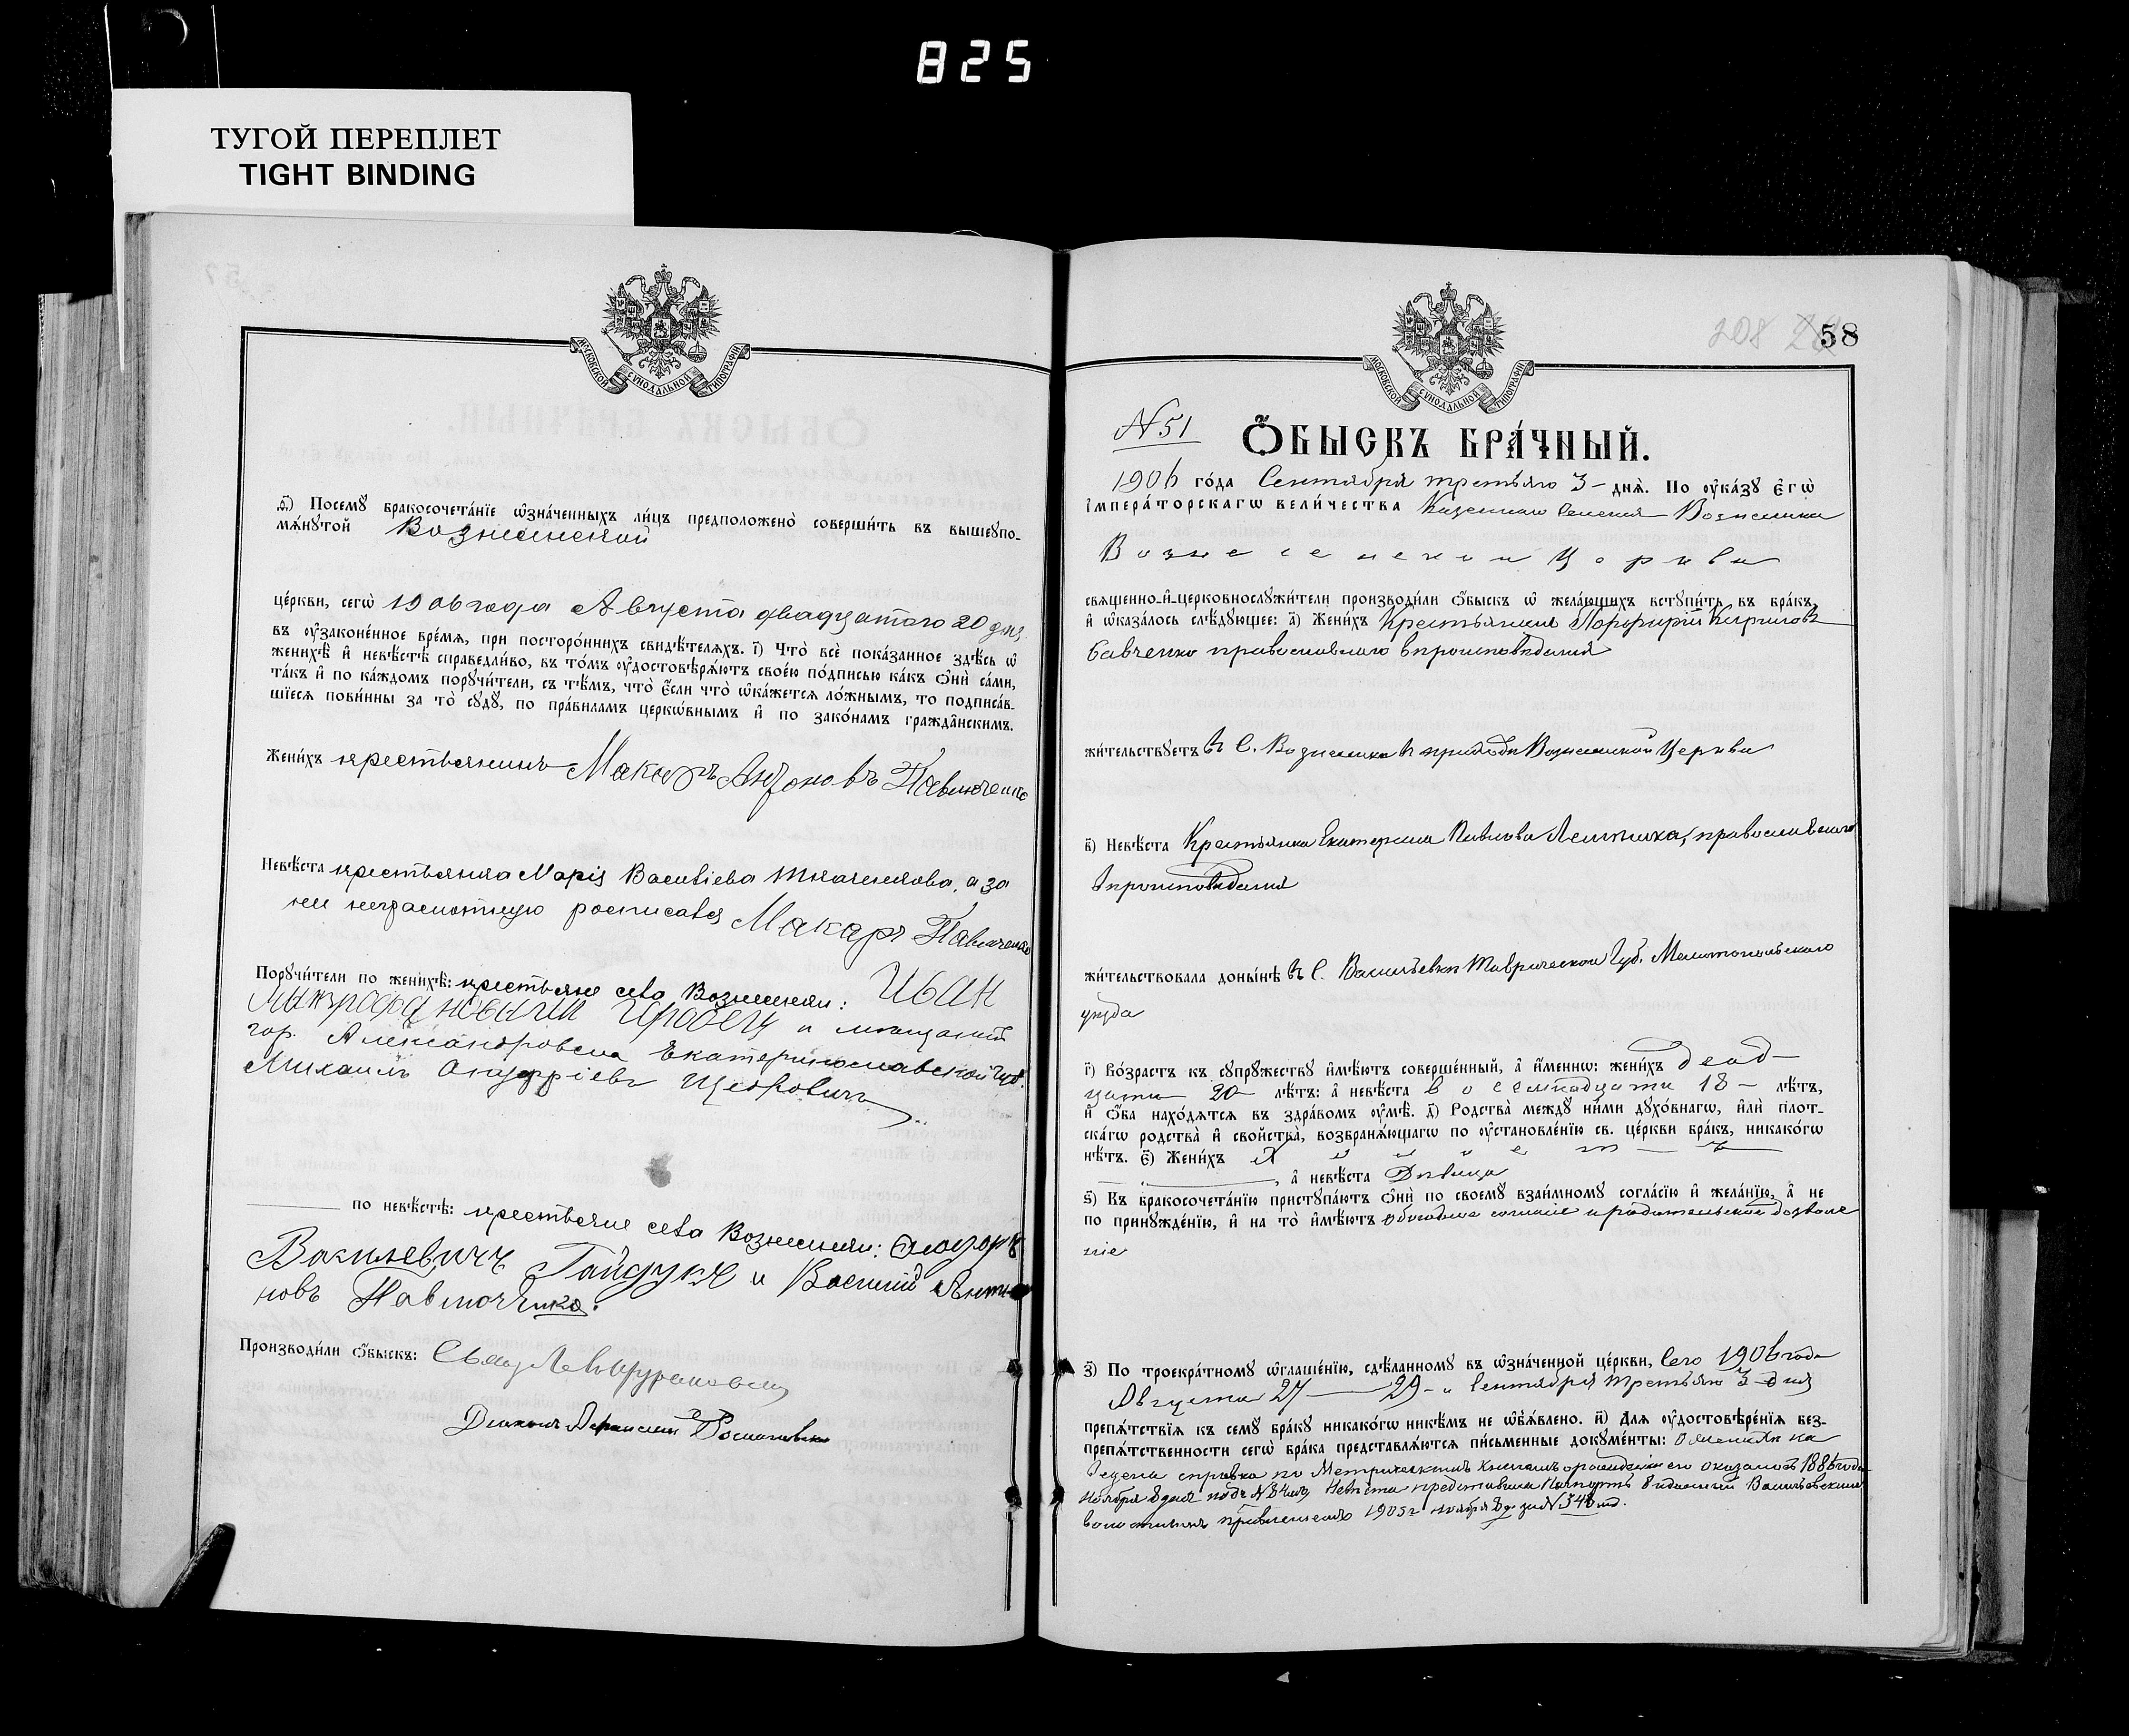 825
ТУГОЙ ПЕРЕПЛЕТ
TIGHT BINDING
МОСКОВСКОЙ СѴНОДАЛЬНОЙ ТИПОГРАФІИ
ѳ҃) Посемꙋ̀ бракосочета́нїе ѡ҆зна́ченныхъ ли́цъ предположено̀ соверши́ть въ вышеꙋпо-
мѧ́нꙋтой Вознесенской
це́ркви, сегѡ̀ 1906 года Августа двадцатого 20 дня
въ ᲂу҆зако́ненное вре́мѧ, при посторо́ннихъ свидѣ́телѧхъ. і҃) Что̀ всѐ пока́занное здѣ́сь ѡ҆
женихѣ̀ и҆ невѣ́стѣ справедли́во, въ то́мъ ᲂу҆достовѣрѧ́ютъ свое́ю по́дписью ка́къ ѻ҆нѝ са́ми,
та́къ и҆ по ка́ждомъ порꙋчи́тели, съ тѣ́мъ, что̀ є҆́сли что̀ ѡ҆ка́жетсѧ ло́жнымъ, то подписа́в-
шїесѧ пови́нны за то̀ сꙋдꙋ̀, по пра́виламъ церкѡ́внымъ и҆ по зако́намъ гражда̂нскимъ.
Жени́хъ крестьянинъ Макаръ Антоновъ Павлюченко
Невѣ́ста крестьянка Марія Васильева Ткаченкова, а за
нее неграмотную росписався Макаръ Павлюченко
Порꙋчи́тели по женихѣ̀: крестьяне села Вознесенки: Иван
Мытрофанович и мещанинъ
гор. Александровска Екатеринославской губ.
Михаилъ Онуфріевъ Щедровичъ
по невѣ́стѣ: крестьяне села Вознесенки: Ѳеодоръ
Васильевичъ Гайдукъ и Василій Анто-
новъ Павлюченко.
Производи́ли ѻ҆́быскъ: Свящ.
Диаконъ
208
58
МОСКОВСКОЙ СѴНОДАЛЬНОЙ ТИПОГРАФІИ
N 51
Ѻ҆́БЫСКЪ БРА́ЧНЫЙ.
1906 го́да Сентября третьяго 3 – днѧ̀. По ᲂу҆ка́зꙋ є҆гѡ̀
і҆мпера́торскагѡ вели́чества Казенного Селения Вознесенки
Вознесенской Церкви
свѧще́нно-и҆-церковнослꙋжи́тели производи́ли ѻ҆́быскъ ѡ҆ жела́ющихъ встꙋпи́ть въ бра́къ,
и҆ ѡ҆каза́лось слѣ́дꙋющее: а҃) Жени́хъ Крестьянинъ Порфирій Кириловъ
Савченко православного вѣроисповѣданія
жи́тельствꙋетъ въ С. Вознесенка въ приходѣ Вознесенской Церкви
в҃) Невѣ́ста Крестьянка Екатерина Павлова, православного
вѣроисповѣданія
жи́тельствовала доны́нѣ въ С. Васильевки Таврической Губ. Мелитопольского
уезда
г҃) Во́зрастъ къ сꙋпрꙋ́жествꙋ и҆мѣ́ютъ соверше́нный, а҆ и҆́меннѡ: жени́хъ двад-
цати 20 – лѣ́тъ: а҆ невѣ́ста восемнадцати 18 – лѣ́тъ,
и҆ ѻ҆́ба нахо́дѧтсѧ въ здра́вомъ ᲂу҆мѣ̀. д҃) Родства̀ междꙋ ни́ми дꙋхо́внагѡ, и҆лѝ плот-
ска́гѡ родства̀ и҆ свойства̀, возбранѧ́ющагѡ по ᲂу҆становле́нїю св. це́ркви бра́къ, никако́гѡ
нѣ́тъ. є҃) Жени́хъ
, а҆ невѣ́ста Дѣвица
ѕ҃) Къ бракосочета́нїю пристꙋпа́ютъ ѻ҆нѝ по своемꙋ̀ взаи́мномꙋ согла́сїю и҆ жела́нїю, а҆ не
по принꙋжде́нїю, и҆ на то̀ и҆мѣ́ютъ обоюдное согласие и родительское дозволе
ніе
з҃) По троекра́тномꙋ ѡ҆глаше́нїю, сдѣ́ланномꙋ въ ѡ҆зна́ченной це́ркви, Сего 1906 года
Августа 27 – 29 – и Сентября третьяго 3 – дня
препѧ́тствїѧ къ семꙋ̀ бра́кꙋ никако́гѡ никѣ́мъ не ѡ҆б̾ѧ́влено. и҃) Длѧ ᲂу҆достовѣре́нїѧ без-
препѧ́тственности сегѡ̀ бра́ка представлѧ́ютсѧ пи́сьменные докꙋме́нты: О женихѣ на
ведена справка по Метрическимъ Книгамъ рождение его оказалось 1886 года
Ноября 8 дня подъ № Невѣста представила Паспортъ выданный Васильевскимъ
волостнымъ правленіемъ 1905 г. ноября 8 д. за № 348